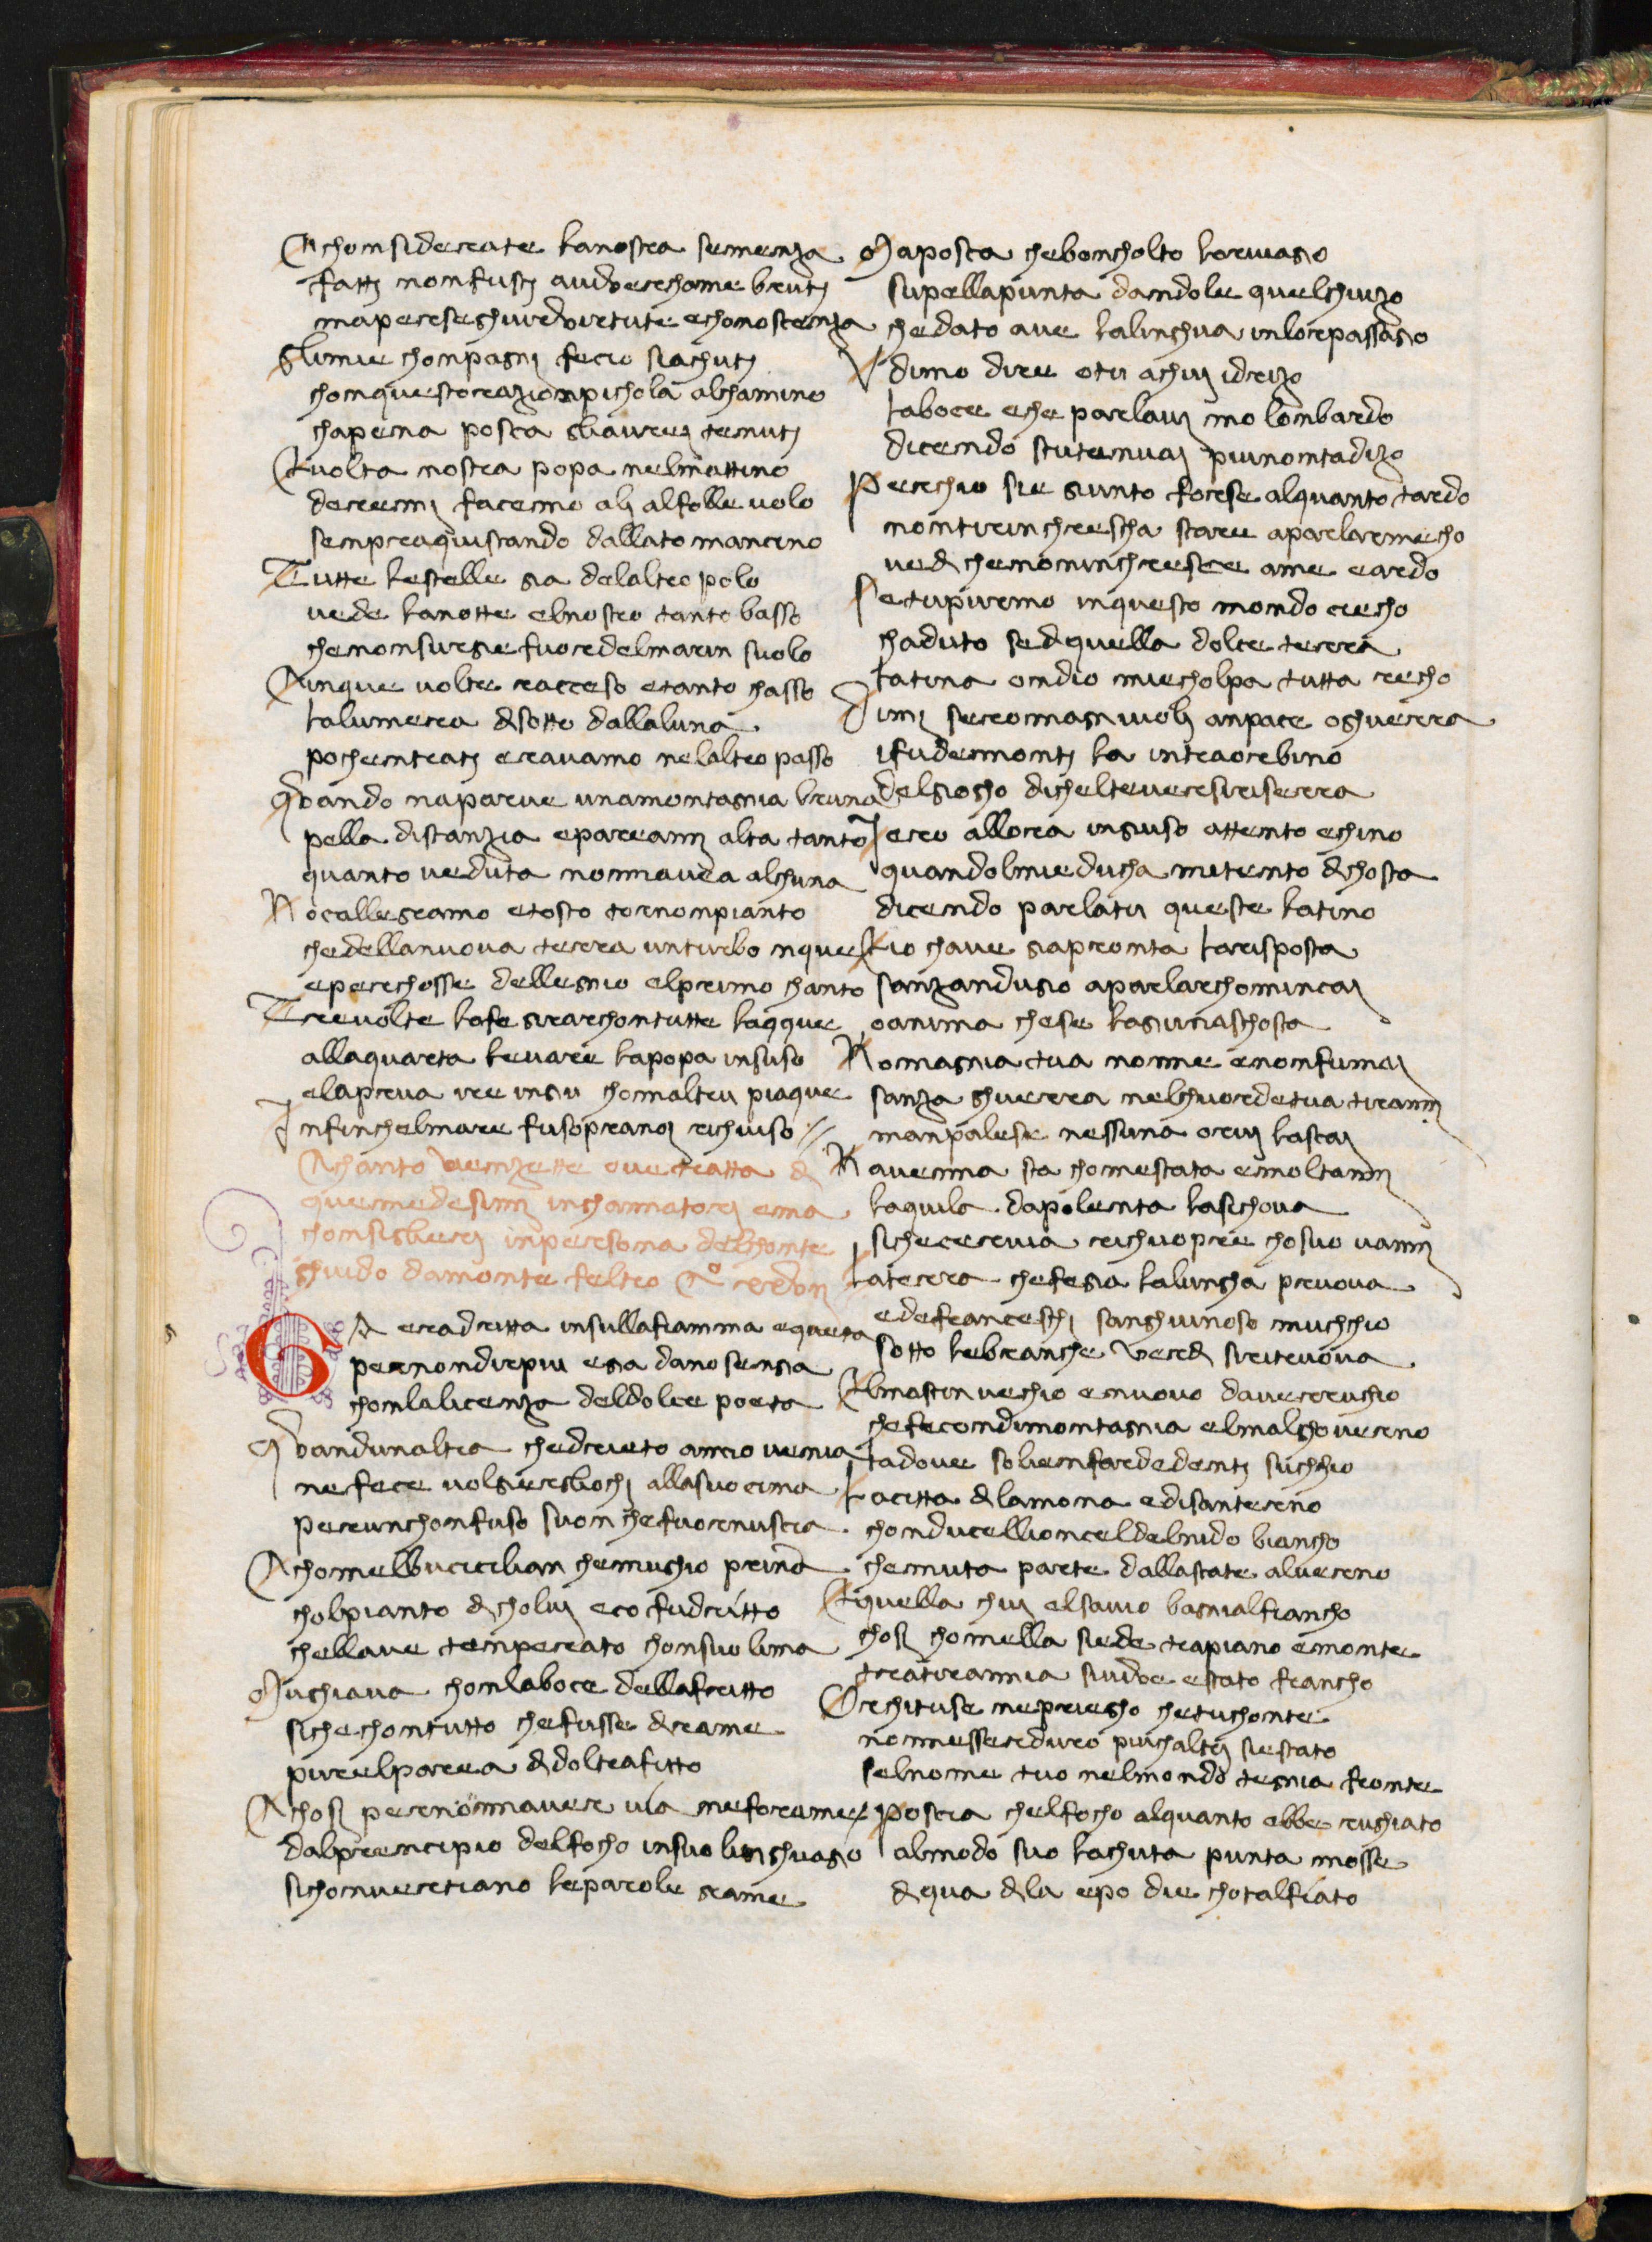 Chonsiderate lanostra semenza
fatti nonfusti aviver chome bruti
mapersseghuir virtute echonoscenza
Glimie chonpagni fecio siachuti
chonquestorazionpichola alchamino
chapena posca gliaurei tenuti
Evolta nostra popa nelmattino
deremi facemo ali alfolle volo
sempreaquistando dallato mancino
Tutte lestelle gia delaltro polo
vede lanotte elnostro tanto basso
chenonsurgie fuordelmarin suolo
Cinque volte racceso etanto chasso
lalumera disotto dallaluna
pochentrati eravamo nelaltro passo
Quando naparve unamontagnia bruna
pella distanzia eparveami alta tanto
quanto veduta nonnavea alchuna
Nocallegramo etosto tornonpianto
chedellanuova terra unturbo nque
eperchosse dellegnio elprimo chanto
Trevolte lafe girarchontutte laqque
allaquarta levare lapopa insuso
elaprua ire ingiu chomaltrui piaque
Infinchelmare fusopranoi richiuso
Chanto venzette ove tratta di
quemedesimi inghannatori ema
chonsiglieri inpersona delchonte
ghuido damonte feltro
Gia eradritta insullafiamma equeta
pernondirpiu egia danosengia
chonlalicenza deldolce poeta
Quandunaltra chedrieto ancio venia
nefece volgieregliochi allasuocima
perunchonfuso suon chefuornuscia
Chomelbuciciliان chemughio prima
cholpianto di cholui eco fudritto
chellave temperato chonsuo lima
Mughiava chonlaboce dellafritto
siche chontutto chefusse dirame
purelparea didoltrafitto
Chosi pernonnaver via neforame
dalprencipio delfocho insuo linghuagio
sichonvertiano leparole grame
Maposca cheboncholto lorviagio
supellapunta dandole quelghuizo
chedato ave lalinghua inlorpassagio
Udimo dire otu achui idrizo
laboce eche parlavi mo lonbardo
dicendo stutenvai piunontadizo
Perchio sie giunto forse alquanto tardo
nontirincrescha stare aparlarmecho
vedi chenonincresce ame eardo
Setupurmo inquesto mondo ciecho
chaduto sediquella dolce terra
latina ondio miecholpa tutta recho
Dimi seromagniuoli anpace oghuerra
ifudemonti la intraorbino
delgiogho dicheltevere sirisserra
Iero allora ingiuso attento echino
quandolmieducha mitento dichosta
dicendo parlatu queste latino
Eio chave giapronta larisposta
sanzandugio aparlarchomincai
oanima chese lagiunaschosta
Romagnia tua nonne enonfumai
sanza ghuerra nelchuordetua tiranni
manpalese nessuna orui lasciai
Ravenna sta chomestata emoltanni
laquila dapolenta lasichova
sichecervia richuopre chosuo vanni
Laterra chefegia lalungha pruova
edefranceschi sanghuinoso muchchio
sotto lebranche verdi siritruova
Elmastin vechio enuovo daveruchio
chefecondimontagnia elmalghoverno
ladove solienfardedenti suchchio
Lacitta dilamona edisanterno
chonducellioncel delnido biancho
chemuta parte dallastate alverno
Equella chui elsavio bagnialfiancho
chosi chomella siede trapiano emonte
tratirannia sivive estato francho
Orchituse nepriegho chetuchonte
nonnesserduro piuchaltri siestato
selnome tuo nelmondo tegnia fronte
Poscia chelfocho alquanto ebbe rughiato
almodo suo lachuta punta mosse
diqua dila epo die chotalfiato